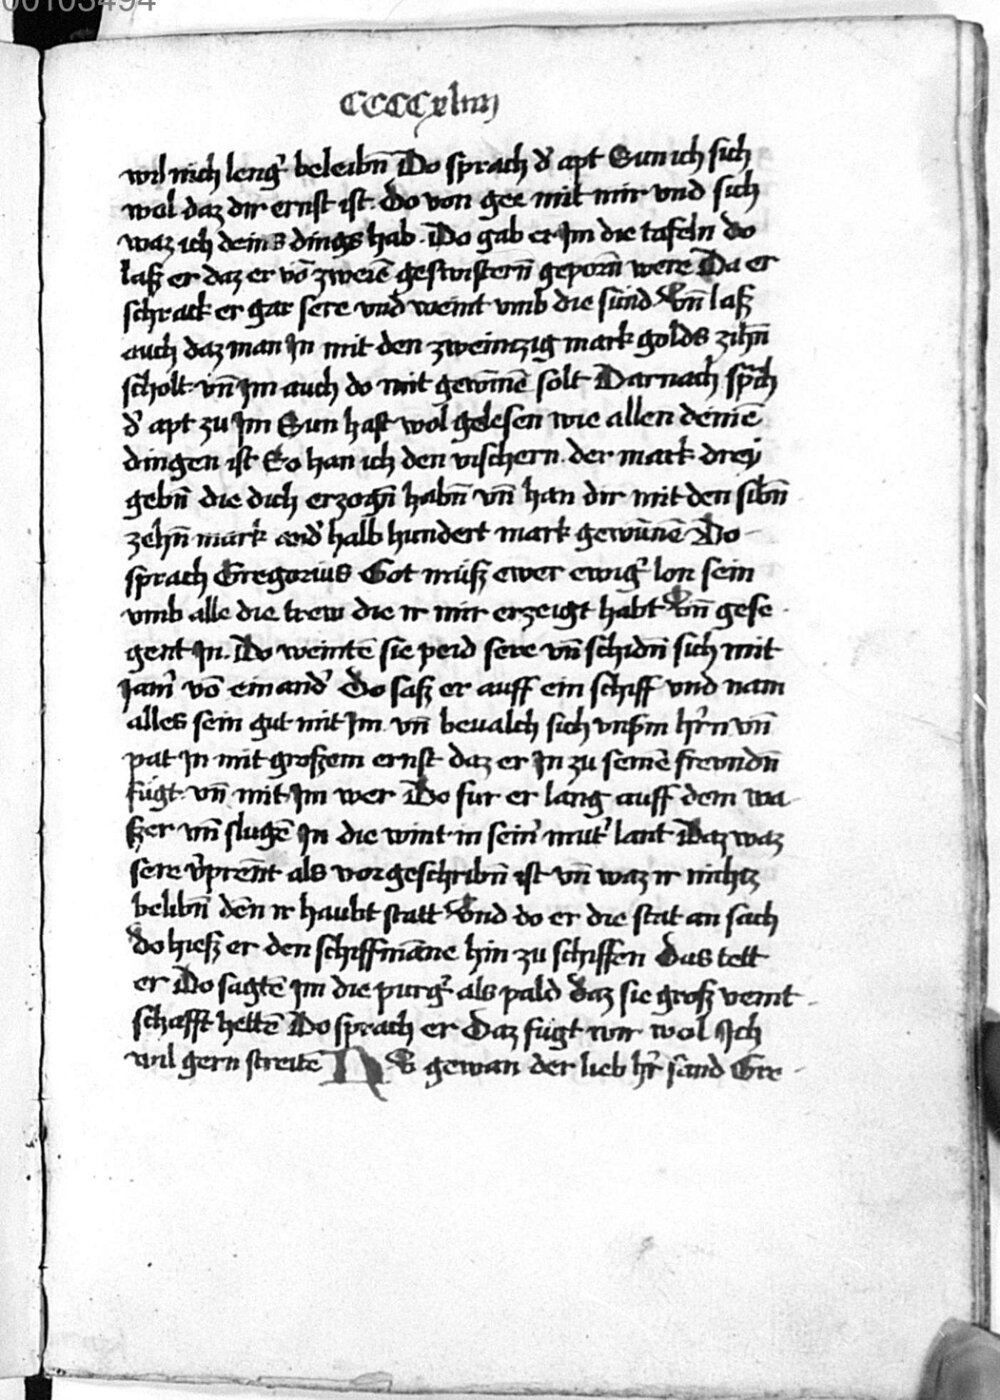 00103494
CCCCxliiij
wil nich leng̾ beleibn̄ Do sprach d̾ apt Sun ich sich
wol daz dir ernst ist. Do von gee mit mir vnd sich
waz ich deins dings hab. Do gab er Im die tafeln do
laß er daz er vō zweiē geswistern̄ geporn̄ were Da er
schrack er gar sere vnd weint vmb die sünd Vn̄ laß
auch daz man In mit den zweintzig mark golds zihn̄
scholt. vn̄ im auch do mit gewinnē solt Darnach sp̾ch
d̾ apt zu Im Sun hast wol gelesen wie allen deinē
dingen ist So han ich den vischern. der mark drey
gebn̄ die dich erzogn̄ habn̄ vn̄ han dir mit den sibn̄
zehn̄ mark and̾ halb hundert mark gewūnē Do
sprach Gregorius Got müß ewer ewig̾ lon sein
vmb alle die trew die ir mir erzeigt habt Vn̄ gese
gent In. Do weintē sie peid sere vn̄ schidn̄ sich mit
Iam̾ vō einand̾ Do saß er auff ein schiff vnd nam
alles sein gut mit Im. vn̄ beualch sich vnßm hr̄n vn̄
pat In mit großem ernst daz er In zu seinē frevndn̄
fügt. vn̄ mit Im wer Do fur er lang auff dem wa
ßer vn̄ slugē In die wint in sein̾ mut̾ lant Daz waz
sere v̾prēnt als vor geschribn̄ ist vn̄ waz ir nichtz
belibn̄ dēn ir haubt statt Vnd do er die stat an sach
do hieß er den schiffmāne hin zu schiffen Das tett
er Do sagtē im die purg̾ als pald daz sie groß veint
schafft hettē Do sprach er Daz fügt mir wol Ich
wil gern streitē NV gewan der lieb hr̄ sand Gre